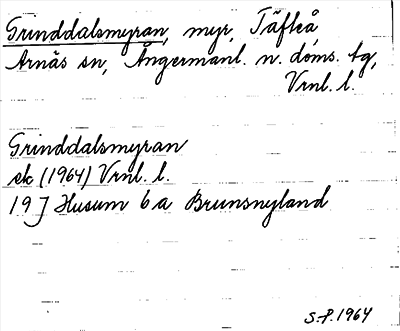 Grinddalsmyran, myr, Täfteå,
Arnäs sn, Ångermanl. n. doms. tg,
Vrnl. l.
Grinddalsmyran
ek (1964) Vrnl. l.
19 J Husum 6 a Brunsnyland
S.P. 1964